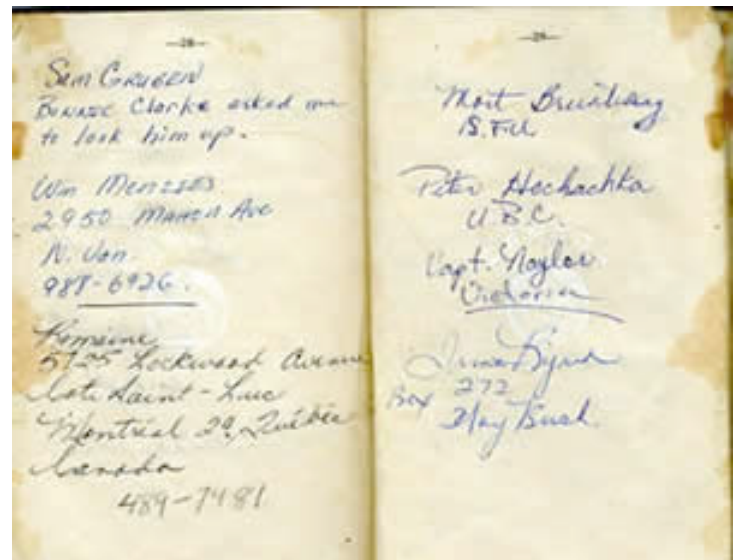 -28-
Sam Gruben
Bonnie Clarke asked me
to look him up.
Win Menzies
2950 Mahon Ave
N. Van
988-6926.
Romaine
5725 Lockwood Avenue
Cote Saint-Luc
Montréal 29, Québec
Canada
489-7481
-29-
Mort
S.F.U.
Peter Hochachka
U.B.C.
Capt. Naylor
Victoria
Box 272
Hay